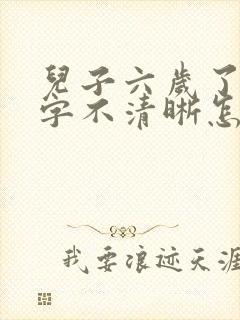 兒子六歲了
字不清晰怎
我要浪迹天涯